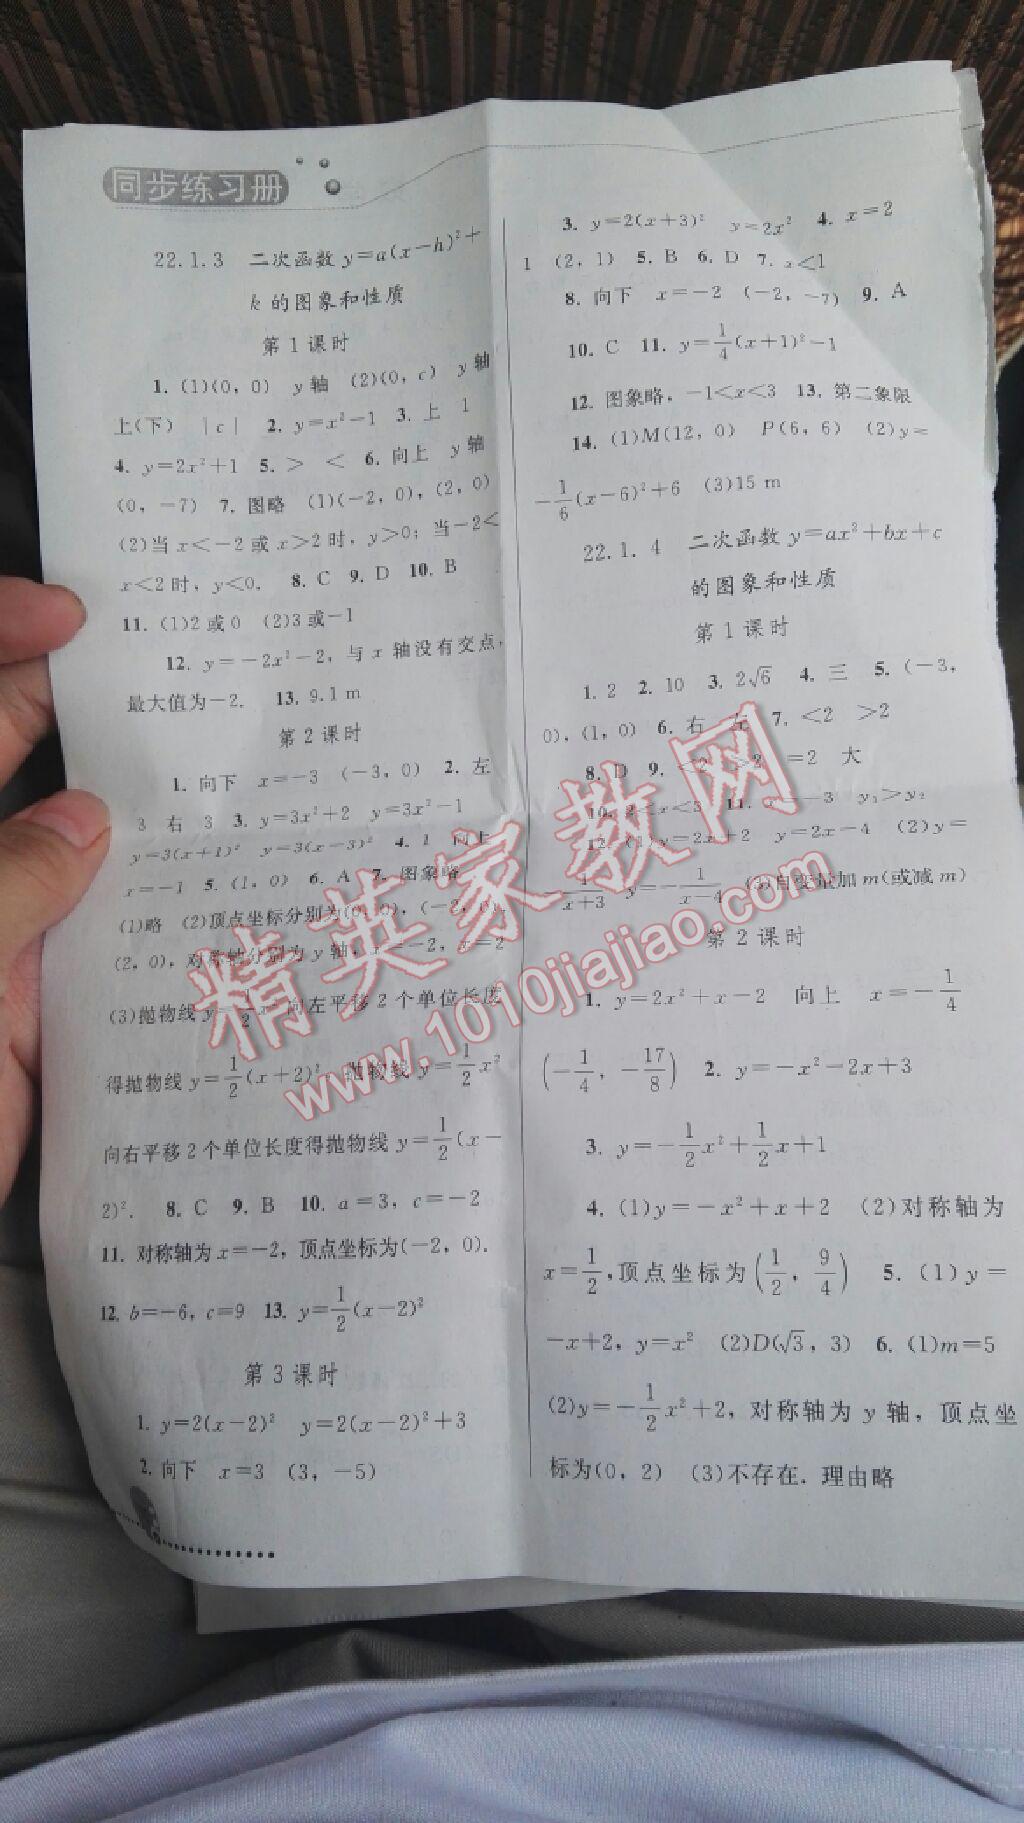 同步练习册
22.1.3 二次函数 y=a(x-h)²+
k 的图象和性质
第 1 课时
1. (1)(0, 0) y 轴 (2)(0, c) y 轴
上(下) |c| 2. y=x²-1 3. 上 1
4. y=2x²+1 5. > < 6. 向上 y 轴
(0, -7) 7. 图略 (1)(-2, 0), (2, 0)
(2)当 x<-2 或 x>2 时, y>0; 当-2<
x<2 时, y<0. 8. C 9. D 10. B
11. (1)2 或 0 (2)3 或-1
12. y=-2x²-2, 与 x 轴没有交点,
最大值为-2. 13. 9.1 m
第 2 课时
1. 向下 x=-3 (-3, 0) 2. 左
3 右 3 3. y=3x²+2 y=3x²-1
y=3(x+1)² y=3(x-3)² 4. 1 向上
x=-1 5. (1, 0) 6. A 7. 图象略
(1)略 (2)顶点坐标分别为(0, 0), (-2, 0),
(2, 0), 对称轴分别为 y 轴, x=-2, x=2
(3)抛物线 y=1/2 x² 向左平移 2 个单位长度
得抛物线 y=1/2(x+2)², 抛物线 y=1/2 x²
向右平移 2 个单位长度得抛物线 y=1/2(x-
2)². 8. C 9. B 10. a=3, c=-2
11. 对称轴为 x=-2, 顶点坐标为(-2, 0).
12. b=-6, c=9 13. y=1/2(x-2)²
第 3 课时
1. y=2(x-2)² y=2(x-2)²+3
2. 向下 x=3 (3, -5)
3. y=2(x+3)² y=2x² 4. x=2
1 (2, 1) 5. B 6. D 7. x<1
8. 向下 x=-2 (-2, -7) 9. A
10. C 11. y=1/4(x+1)²-1
12. 图象略, -1<x<3 13. 第二象限
14. (1)M(12, 0) P(6, 6) (2)y=
-1/6(x-6)²+6 (3)15 m
22.1.4 二次函数 y=ax²+bx+c
的图象和性质
第 1 课时
1. 2 2. 10 3. 2√6 4. 三 5. (-3,
0), (1, 0) 6. 右 左 7. <2 >2
8. D 9. <2 >2 =2 大
10. 2<x<3 11. 3 y₁>y₂
12. (1)y=2x+2 y=2x-4 (2)y=
1/(x+3) y=-1/(x-4) (3)自变量加 m(或减 m)
第 2 课时
1. y=2x²+x-2 向上 x=-1/4
(-1/4, -17/8) 2. y=-x²-2x+3
3. y=-1/2 x²+1/2 x+1
4. (1)y=-x²+x+2 (2)对称轴为
x=1/2, 顶点坐标为(1/2, 9/4) 5. (1)y=
-x+2, y=x² (2)D(√3, 3) 6. (1)m=5
(2)y=-1/2 x²+2, 对称轴为 y 轴, 顶点坐
标为(0, 2) (3)不存在. 理由略
精英家教网
www.1010jiajiao.com